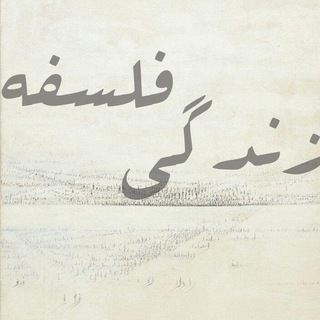 فلسفه
زندگی